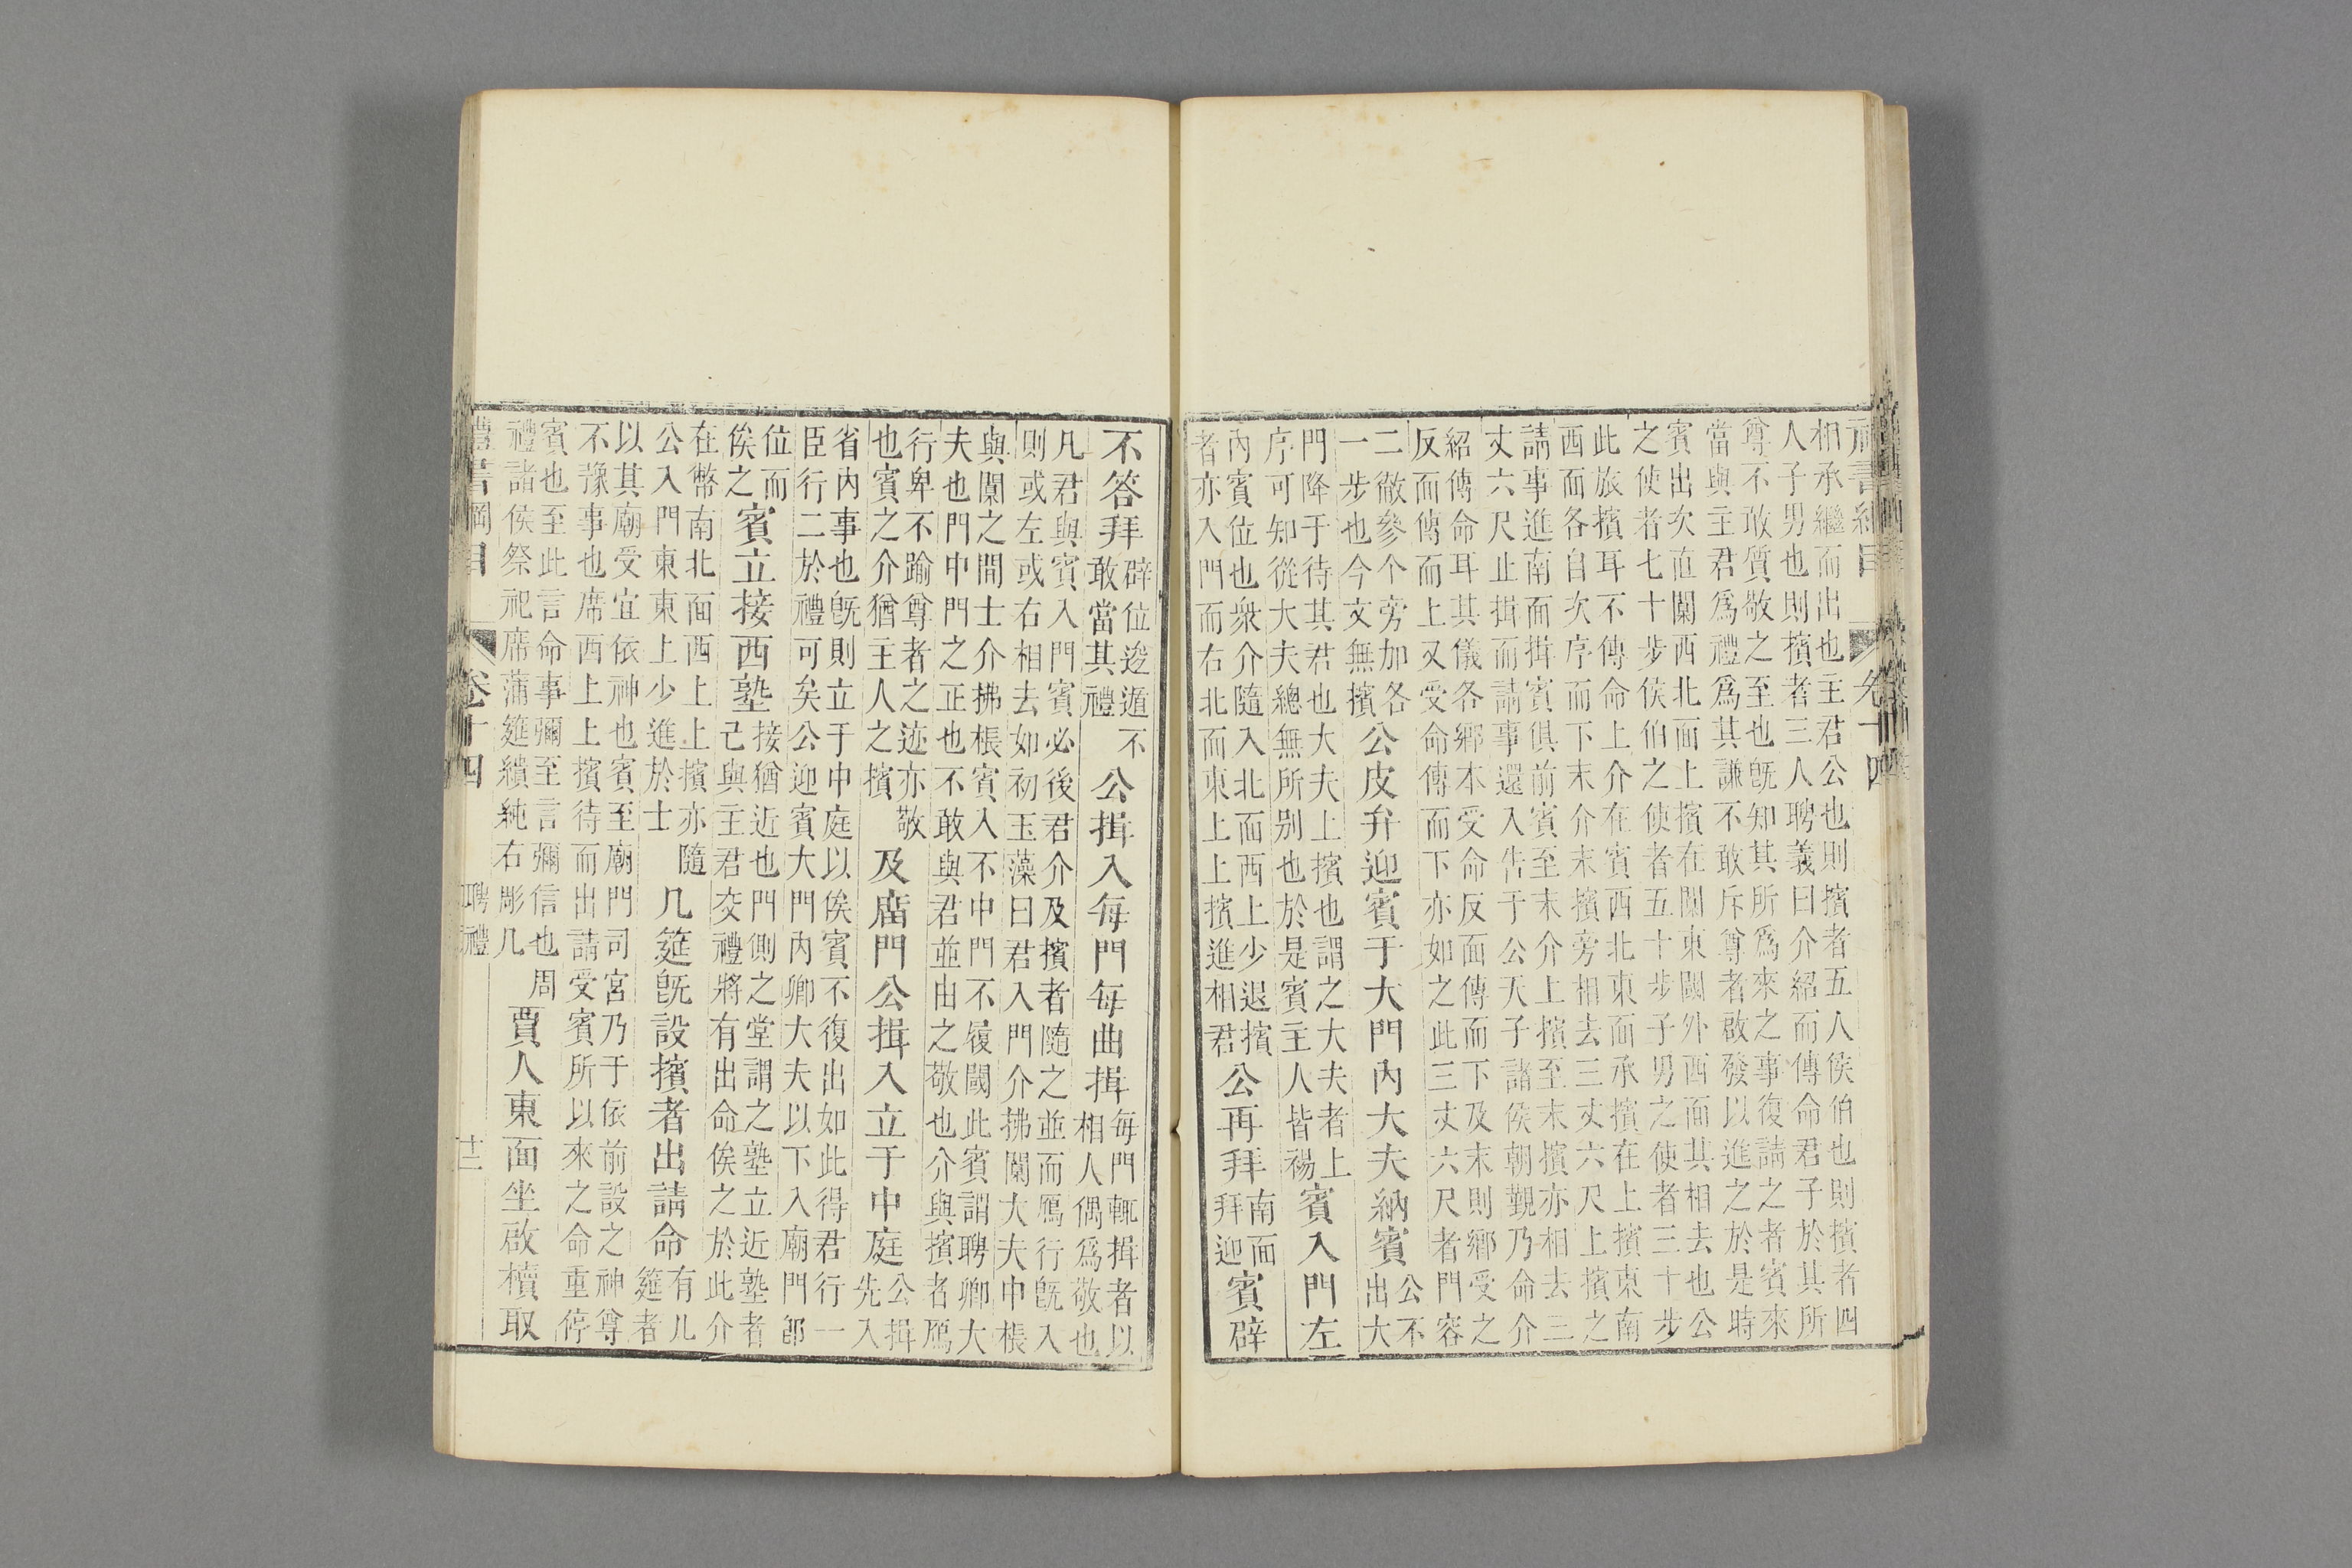 相承繼而出也主君公也則擯者五人侯伯也則擯者四
人子男也則擯者三人聘義曰介紹而傳命君子於其所
尊不敢質敬之至也旣知其所爲來之事復請之者賓來
當與主君爲禮爲其謙不敢斥尊者啟發以進之於是時
賓出次直闑西北面上擯在闑東閾外西面其相去也公
之使者七十步侯伯之使者五十步子男之使者三十步
此旅擯耳不傳命上介在賓西北東面承擯在上擯東南
西面各自次序而下末介末擯旁相去三丈六尺上擯之
請事進南面揖賓俱前賓至末介上擯至末擯亦相去三
丈六尺止揖而請事還入告于公天子諸侯朝覲乃命介
紹傳命耳其儀各鄉本受命反面傳而下及末則鄉受之
反面傳而上又受命傳而下亦如之此三丈六尺者門容
二徹參个旁加各
一步也今文無擯
公皮弁迎賓于大門內大夫納賓
公不
出大
門降于待其君也大夫上擯也謂之大夫者上
序可知從大夫總無所别也於是賓主人皆裼
賓入門左
內賓位也衆介隨入北面西上少退擯
者亦入門而右北面東上上擯進相君
公再拜
南面
拜迎
賓辟
不答拜
辟位逡遁不
敢當其禮
公揖入每門每曲揖
每門輒揖者以
相人偶爲敬也
凡君與賓入門賓必後君介及擯者隨之並而鴈行旣入
則或左或右相去如初玉藻曰君入門介拂闑大夫中棖
與闑之間士介拂棖賓入不中門不履閾此賓謂聘卿大
夫也門中門之正也不敢與君並由之敬也介與擯者鴈
行卑不踰尊者之迹亦敬
也賓之介猶主人之擯
及廟門公揖入立于中庭
公揖
先入
省內事也旣則立于中庭以俟賓不復出如此得君行一
臣行二於禮可矣公迎賓大門內卿大夫以下入廟門卽
位而
俟之
賓立接西塾
接猶近也門側之堂謂之塾立近塾者
己與主君交禮將有出命俟之於此介
在幣南北面西上上擯亦隨
公入門東東上少進於士
几筵旣設擯者出請命
有几
筵者
以其廟受宜依神也賓至廟門司宮乃于依前設之神尊
不豫事也席西上上擯待而出請受賓所以來之命重停
賓也至此言命事彌至言彌信也周
禮諸侯祭祀席蒲筵繢純右彫几
賈人東面坐啟櫝取
禮書綱目
卷十四
聘禮
十二